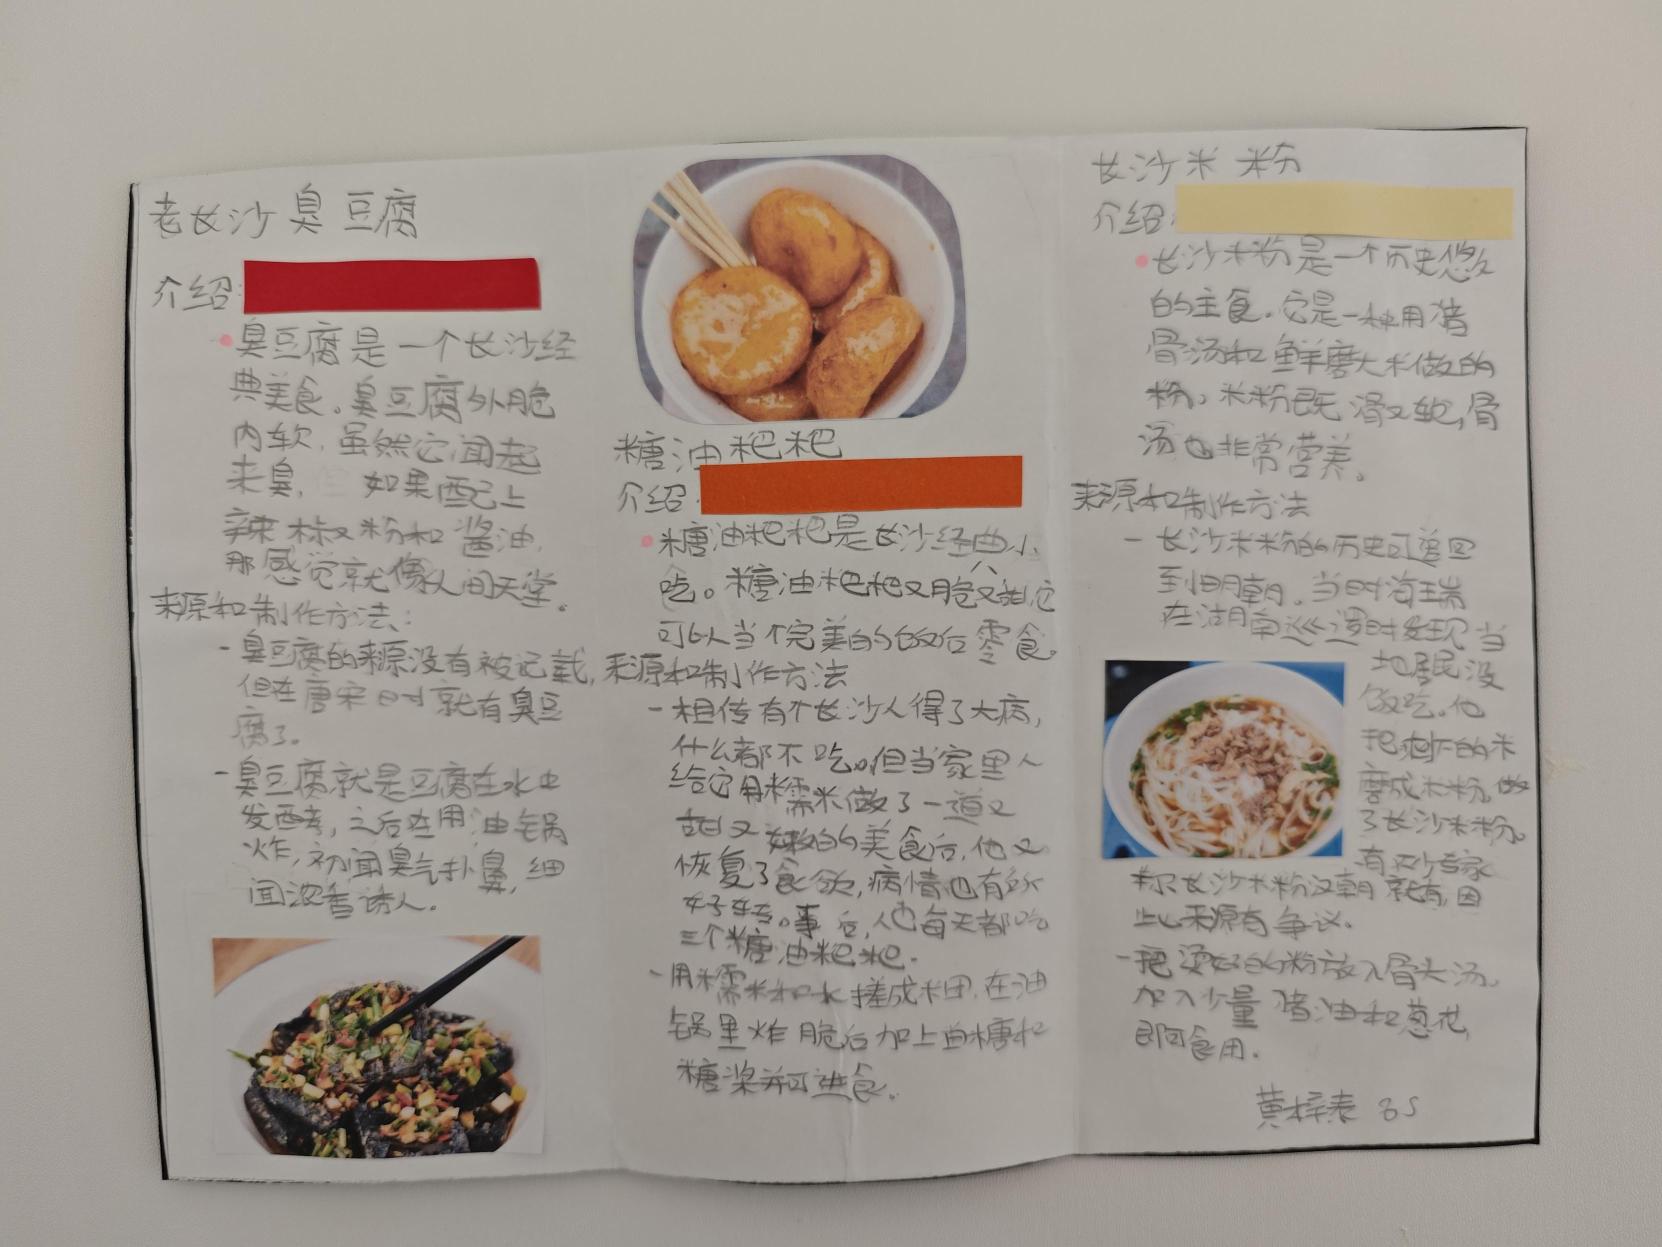 老长沙臭豆腐
介绍:
臭豆腐是一个长沙经
典美食。臭豆腐外脆
内软,虽然它闻起
来臭, 如果配上
辣椒粉和酱油,
那感觉就像人间天堂。
来源和制作方法:
-臭豆腐的来源没有被记载,
但在唐宋时就有臭豆
腐了。
-臭豆腐就是豆腐在水中
发酵,之后在用油锅
炸,初闻臭气扑鼻,细
闻浓香诱人。
糖油粑粑
介绍:
糖油粑粑是长沙经典小
吃。糖油粑粑又脆又甜,它
可以当个完美的饭后零食。
来源和制作方法
-相传有个长沙人得了大病,
什么都不吃。但当家里人
给它用糯米做了一道又
甜又嫩的美食后,他又
恢复了食欲,病情也有所
好转。事后,人也每天都吃
三个糖油粑粑.
-用糯米和水搓成米团,在油
锅里炸脆后加上白糖和
糖浆并可进食。
长沙米粉
介绍:
长沙米粉是一个历史悠久
的主食。它是一种用猪
骨汤和鲜磨大米做的
粉。米粉既滑又软,骨
汤也非常营养。
来源和制作方法
-长沙米粉的历史可追回
到明朝。当时海瑞
在湖南巡逻时发现当
地居民没
饭吃。他
把剩下的米
磨成米粉,做
了长沙米粉。
有少专家
称长沙米粉汉朝就有,因
此来源有争议。
-把烫好的粉放入骨头汤。
加入少量猪油和葱花,
即可食用.
黄梓 8S